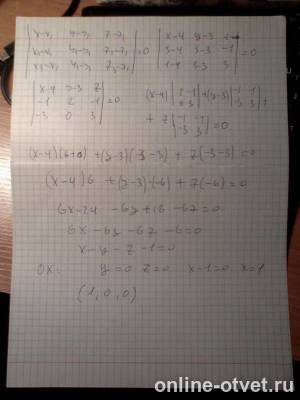 | x-x₁ y-y₁ z-z₁ |
| x₂-x₁ y₂-y₁ z₂-z₁ | =0
| x₃-x₁ y₃-y₁ z₃-z₁ |
| x-4 y-3 z |
| 3-4 -1 | =0
| 1-4 3-3 3 |
| x-4 y-3 z |
| -1 2 -1 | =0
| -3 0 3 |
(x-4) | 2 -1 | +(y-3) | -1 -1 | +
| 0 3 | | -3 3 |
+ z =0
(x-4)(6+0) +(y-3)( -3) + z( -3)=0
(x-4)6 +(y-3)·(-6) + z(-6)=0
6x-24 -6y+18 -6z=0
6x -6y -6z -6=0
x-y-z-1=0
OX: y=0 z=0 x-1=0 x=1
(1,0,0)
online-otvet.ru